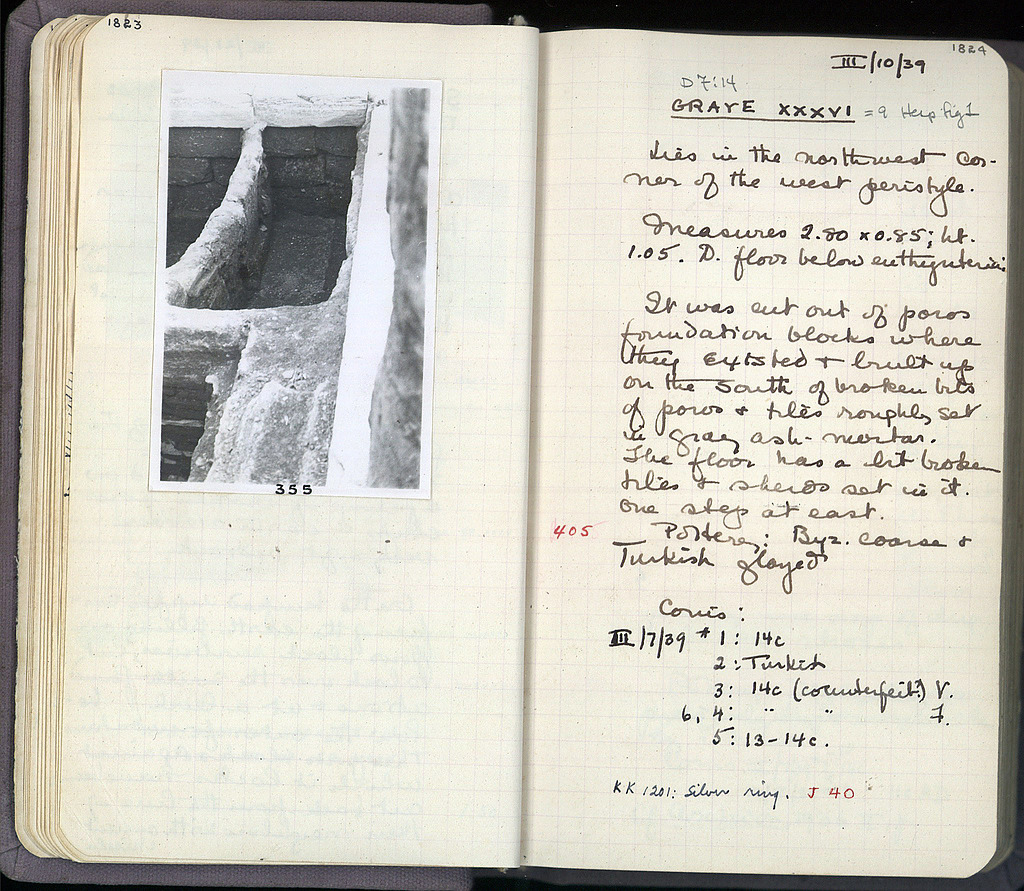 1823
355
1824
III/10/39
D 7:14
GRAVE XXXVI = 9 Hesp fig 1
Lies in the northwest cor-
ner of the west peristyle.
Measures 2.80 x 0.85; ht.
1.05. D. floor below euthynteria
It was cut out of poros
foundation blocks where
they existed + built up
on the south of broken bits
of poros + tiles roughly set
in gray ash-mortar.
The floor has a bit broken
tiles + sherds set in it.
One step at east.
405
Pottery: Byz. coarse +
Turkish glazed
Coins:
III/7/39 # 1: 14c
2: Turkish
3: 14c (counterfeit?) V.
6, 4: " "
5: 13-14c.
KK 1201: Silver ring. J 40